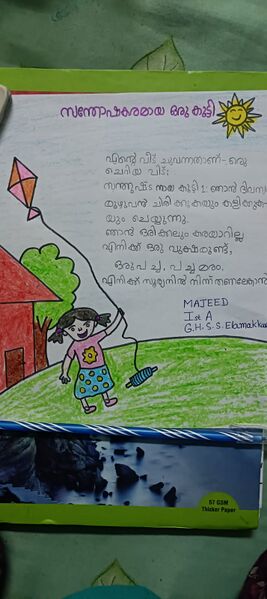 സന്തോഷകരമായ ഒരു കുട്ടി
എന്റെ വീട് ചുവന്നതാണ് - ഒരു
ചെറിയ വീട്;
സന്തുഷ്ട നായ കുട്ടി : ഞാൻ ദിവസം
മുഴുവൻ ചിരിക്കുകയും കളിക്കുക
യും ചെയ്യുന്നു.
ഞാൻ ഒരിക്കലും കരയാറില്ല
എനിക്ക് ഒരു വൃക്ഷമുണ്ട്,
ഒരു പച്ച, പച്ച മരം.
എനിക്ക് സൂര്യനിൽ നിന്ന് തണലേകാൻ
MAJEED
Ist A
G.H.S.S. Elamakkara
57 GSM
Thicker Paper